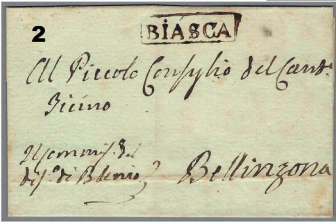 2
BIASCA
Al Piccolo Consiglio del Cant.e
Ticino
Il Commis. del
di Blenio
Bellinzona